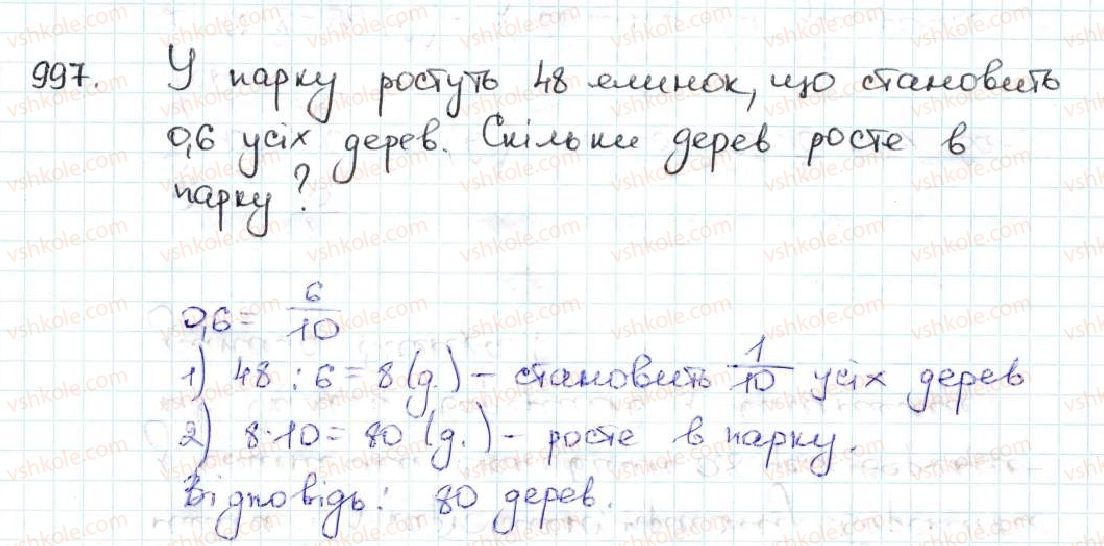 997. У парку ростуть 48 ялинок, що становить
0,6 усіх дерев. Скільки дерев росте в
парку?
0,6 = 6/10
1) 48 : 6 = 8 (д.) - становить 1/10 усіх дерев
2) 8 · 10 = 80 (д.) - росте в парку.
Відповідь: 80 дерев.